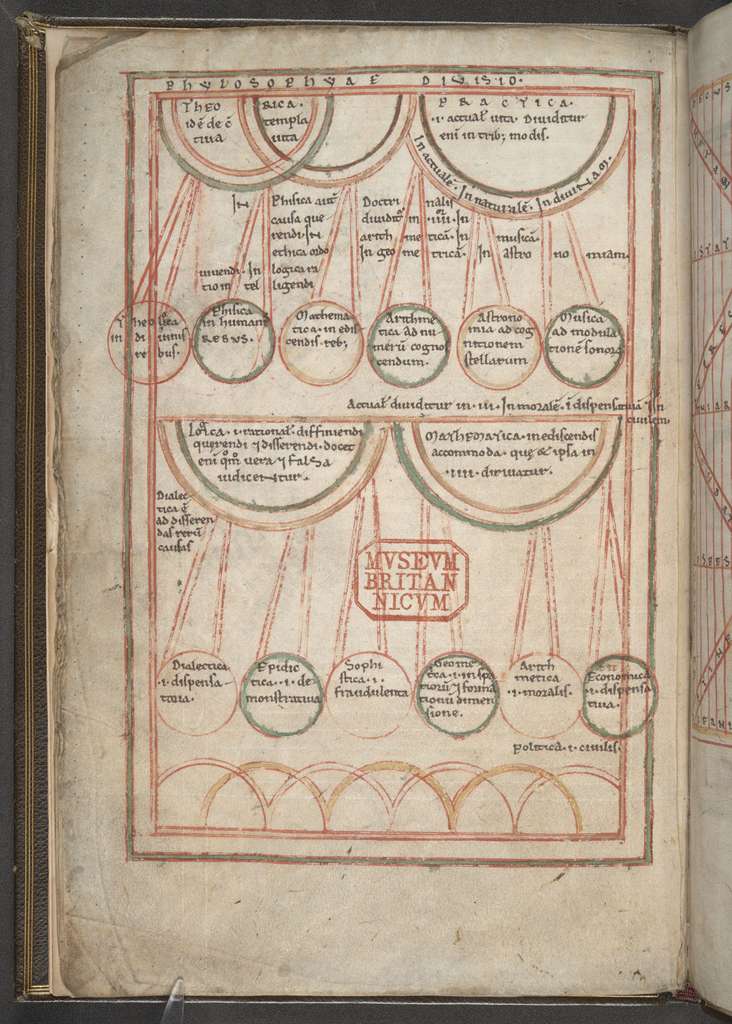 PHYLOSOPHYAE DIVISIO.
THEO RICA.
idē de ē templa
tiua uita
PRACTICA.
.i. actual uita. Diuiditur
eni in trib; modis.
In actualē. In naturalē. In
IN Phisica aut
causa que
rendi. IN
ethica ordo
uiuendi. In logica ra
tio in tel ligendi
Doctri nalis
diuidit in .iiii. In
arith me ticā. In musicā.
In geo me tricā. In astro no miam.
Theo logica
in di uinis
re bus.
Phisica
in humanis
REBUS.
Mathema
tica. in edis
cendis reb;
Arithme
tica ad nu
merū cogno
cendum.
Astrono
mia ad cog
nitionem
stellarum
Musica
ad modula
tionē sonorū
Actual diuiditur in .iii. In moralē. ī dispensatiuā & In
ciuilem
.i. rational. diffiniendi
querendi & disserendi. docet
eni qm uera & falsa
iudicentur.
MATHEMATICA. in ediscendis
accommoda. que & ipsa in
.iiii. diriuatur.
Dialec
tica ē
ad disseren
das rerū
causas
MVSEVM
BRITAN
NICVM
Dialectica
.i. dispensa
toria.
Epidic
tica. .i. de
monstratiua
Sophi
stica .i.
fraudulenta
Geome
trica .i. in spa
tiorū & forma
tionū dimen
sione.
Arith
metica
.i. moralis.
Economica
.i. dispensa
tiua.
politica .i. ciuilis.